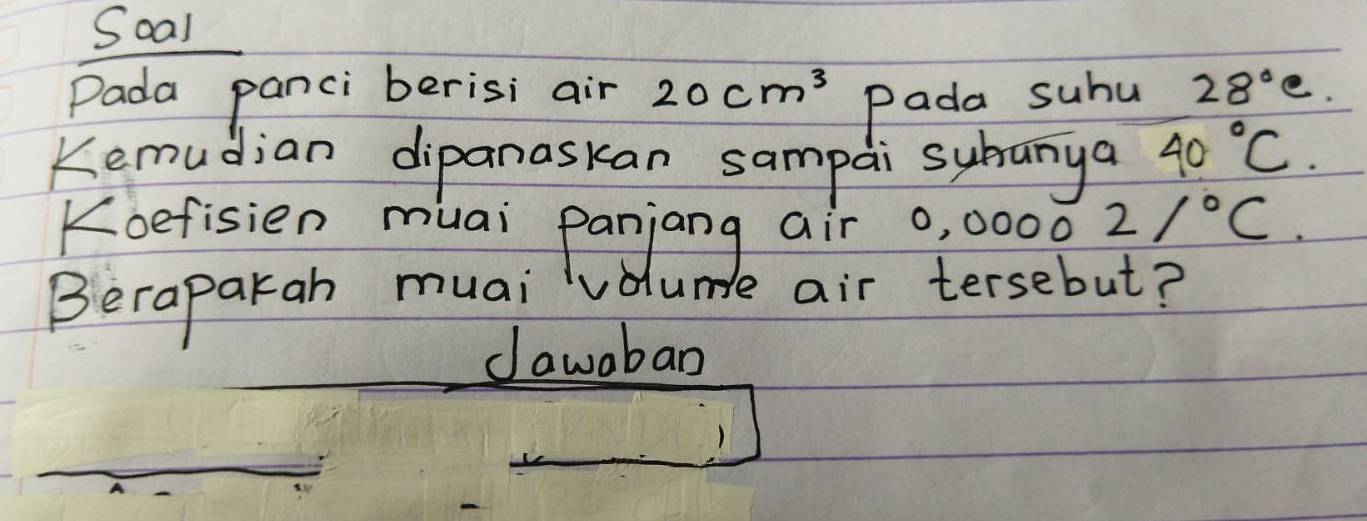 Soal
Pada panci berisi air 20 cm³ pada suhu 28°c.
Kemudian dipanaskan sampai suhunya 40 °C.
Koefisien muai panjang air 0,0000 2/°C.
Berapakah muai volume air tersebut?
Jawaban